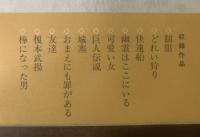 収録作品
◇制服
◇どれい狩り
◇快速船
◇幽霊はここにいる
◇可愛い女
◇巨人伝説
◇城塞
◇おまえにも罪がある
◇友達
◇榎本武揚
◇棒になった男